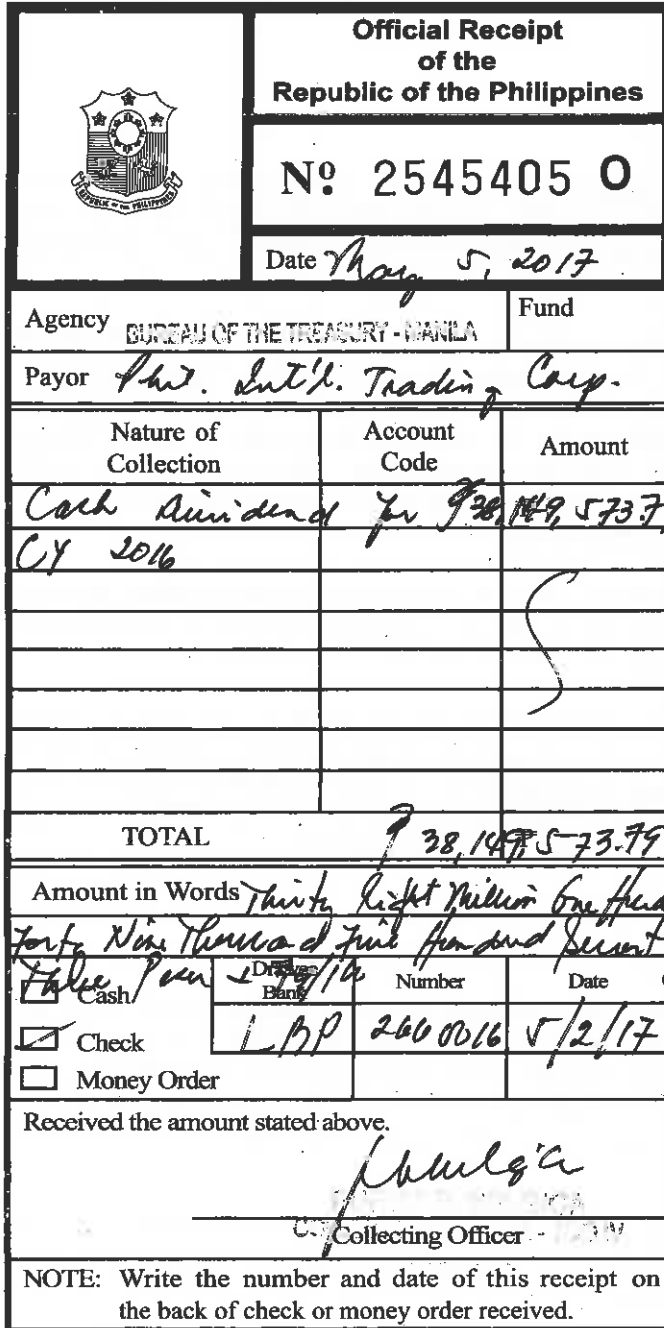 Official Receipt
of the
Republic of the Philippines
REPUBLIC OF THE PHILIPPINES
Nº 2545405 O
Date May 5, 2017
Agency BUREAU OF THE TREASURY - MANILA Fund
Payor Phil. Int'l. Trading Corp.
Nature of Collection Account Code Amount
Cash dividend for ₱38,149,573.7
CY 2016
TOTAL ₱ 38,149,573.79
Amount in Words Thirty Eight Million One Hund
Forty Nine Thousand Five Hundred Sevent
Three Pesos 79/100
Cash Drawee Bank Number Date
Check LBP 2660016 5/2/17
Money Order
Received the amount stated above.
Collecting Officer
NOTE: Write the number and date of this receipt on
the back of check or money order received.